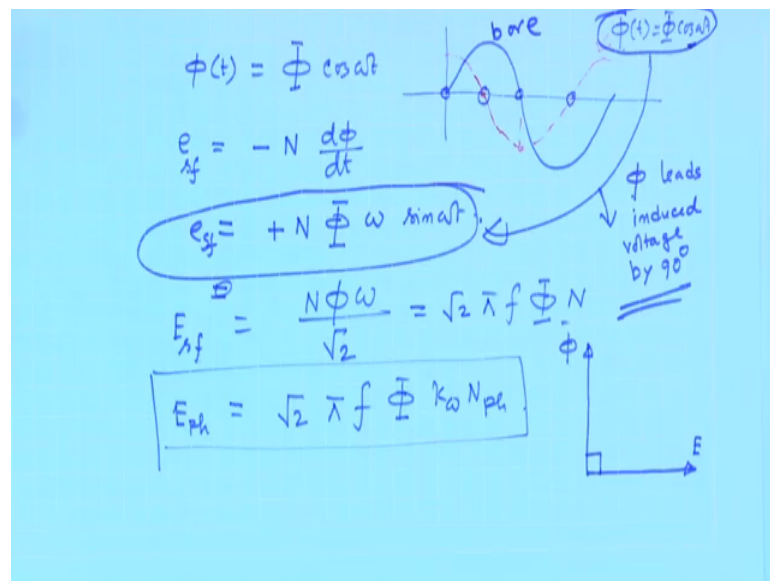 bore
ϕ(t) = Φ̄ cosωt
ϕ(t) = Φ̄ cosωt
e = - N dϕ/dt
e = + N Φ̄ ω sinωt
ϕ leads
induced
voltage
by 90°
E = NϕW/√2 = √2 π f Φ̄ N
E_ph = √2 π f Φ̄ k_ω N_ph
ϕ
E